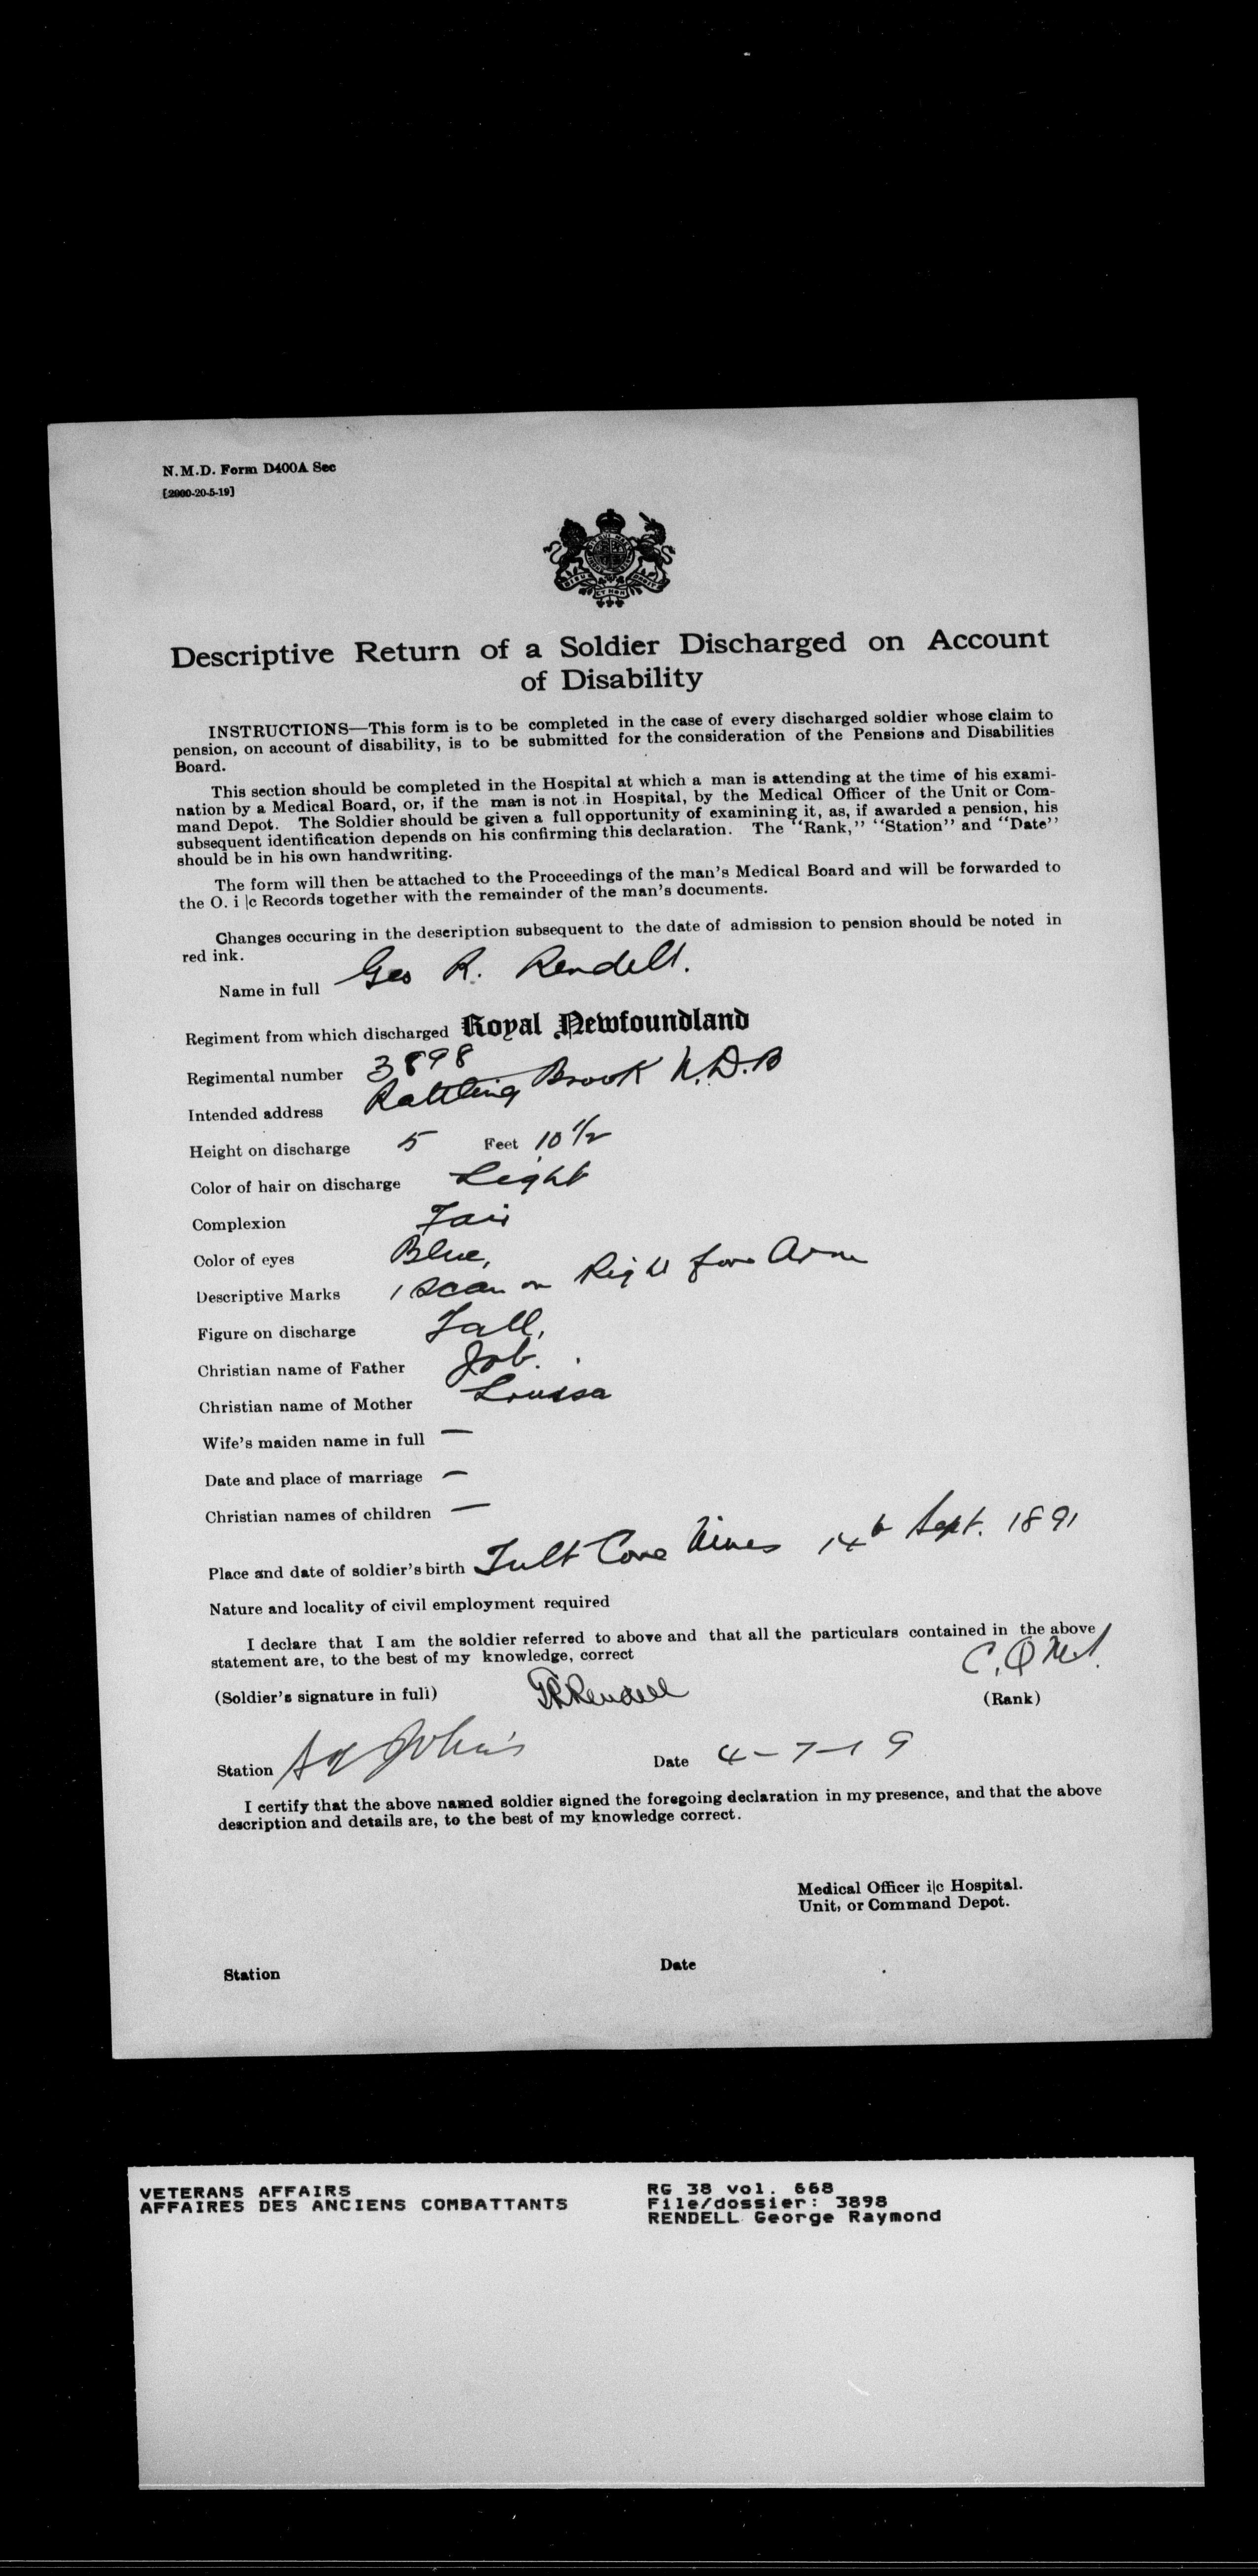 N.M.D. Form D400A Sec
[2000-20-5-19]
Descriptive Return of a Soldier Discharged on Account
of Disability
INSTRUCTIONS—This form is to be completed in the case of every discharged soldier whose claim to
pension, on account of disability, is to be submitted for the consideration of the Pensions and Disabilities
Board.
This section should be completed in the Hospital at which a man is attending at the time of his exami-
nation by a Medical Board, or, if the man is not in Hospital, by the Medical Officer of the Unit or Com-
mand Depot. The Soldier should be given a full opportunity of examining it, as, if awarded a pension, his
subsequent identification depends on his confirming this declaration. The "Rank," "Station" and "Date"
should be in his own handwriting.
The form will then be attached to the Proceedings of the man's Medical Board and will be forwarded to
the O. i |c Records together with the remainder of the man's documents.
Changes occuring in the description subsequent to the date of admission to pension should be noted in
red ink.
Name in full Geo R. Rendell.
Regiment from which discharged Royal Newfoundland
Regimental number 3898
Intended address Rattling Brook N.D.B
Height on discharge 5 Feet 10 1/2
Color of hair on discharge Light
Complexion Fair
Color of eyes Blue,
Descriptive Marks 1 Scar on Right fore Arm
Figure on discharge Tall,
Christian name of Father Job.
Christian name of Mother Loussa
Wife's maiden name in full —
Date and place of marriage —
Christian names of children —
Place and date of soldier's birth Tilt Cove Mines 14th Sept. 1891
Nature and locality of civil employment required
I declare that I am the soldier referred to above and that all the particulars contained in the above
statement are, to the best of my knowledge, correct
(Soldier's signature in full) GRRendell C.Q.M.S. (Rank)
Station St John's Date 4-7-19
I certify that the above named soldier signed the foregoing declaration in my presence, and that the above
description and details are, to the best of my knowledge correct.
Medical Officer i|c Hospital.
Unit, or Command Depot.
Station Date
VETERANS AFFAIRS RG 38 vol. 668
AFFAIRES DES ANCIENS COMBATTANTS File/dossier: 3898
RENDELL George Raymond